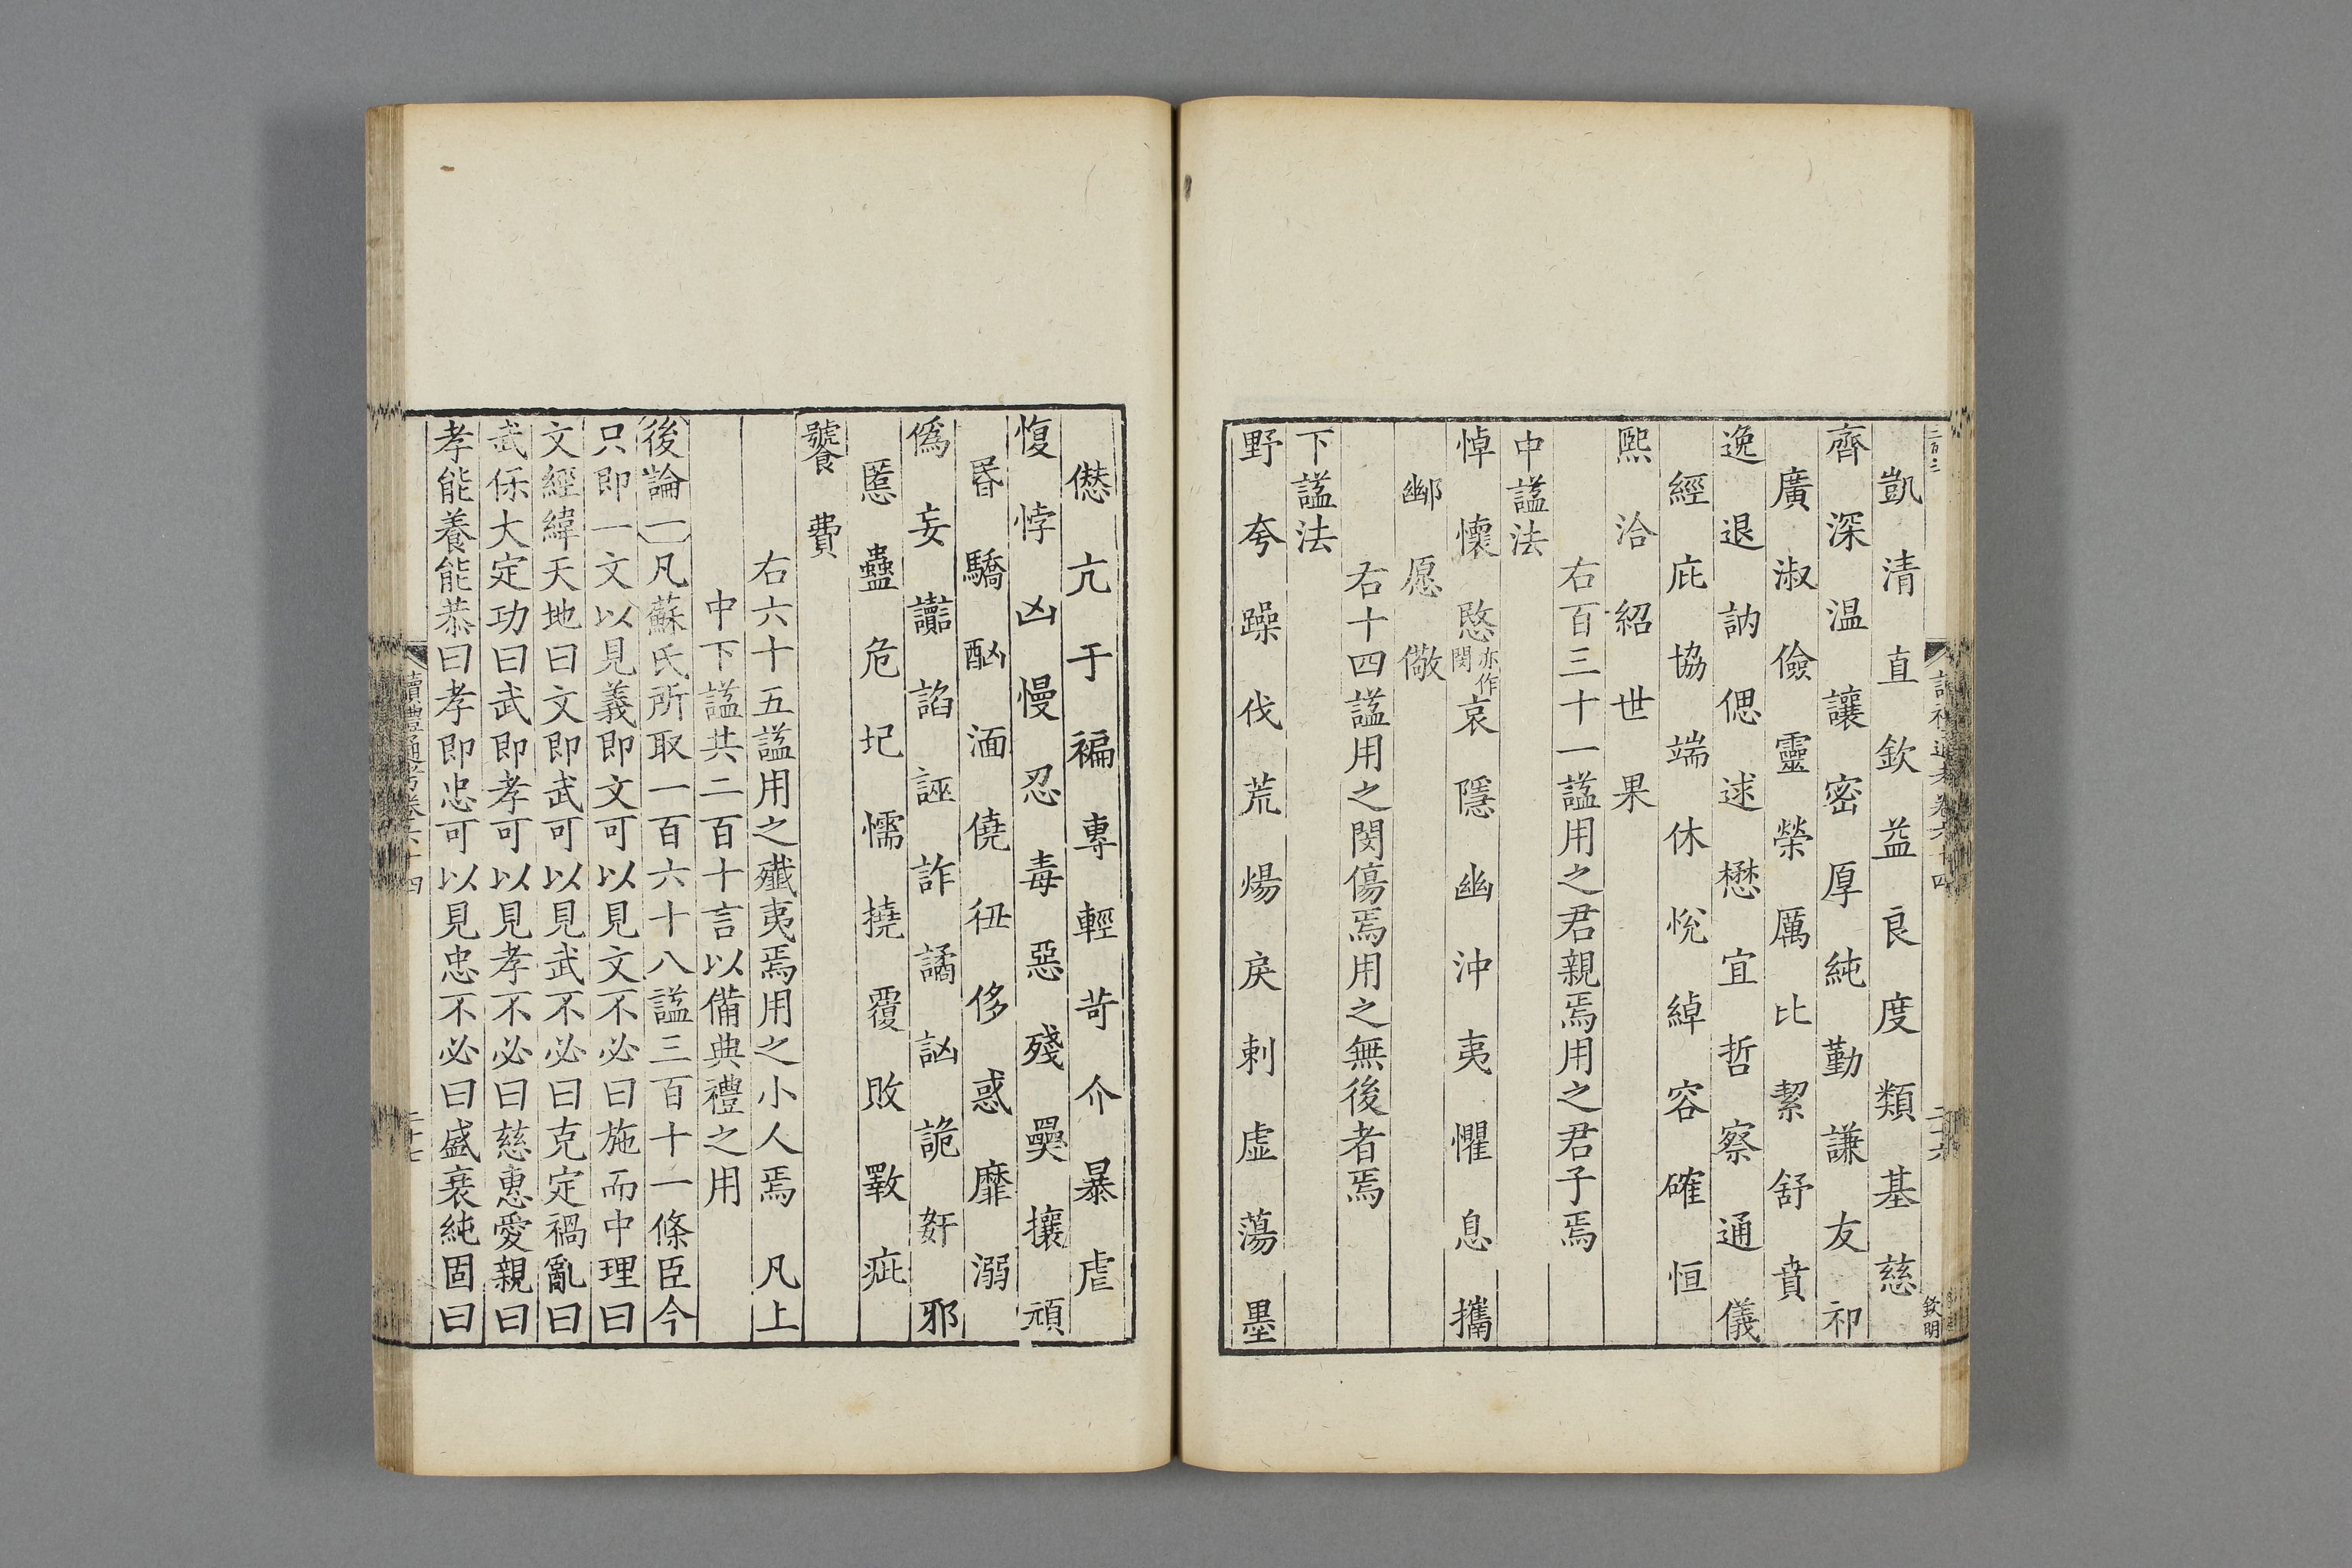 凱清直欽益良度類基慈
齊深温讓密厚純勤謙友祁
廣淑儉靈榮厲比絜舒賁
逸退訥偲逑懋宜哲察通儀
經庇協端休悅綽容確恒
熙洽紹世果
右百三十一諡用之君親焉用之君子焉
中諡法
悼懷愍亦作閔哀隱幽沖夷懼息攜
鄉愿儆
右十四諡用之閔傷焉用之無後者焉
下諡法
野夸躁伐荒煬戾剌虛蕩墨
僣亢干褊專輕苛介暴虐
愎悖凶慢忍毒惡殘奰攘頑
昏驕酗湎僥狃侈惑靡溺
偽妄讟諂誣詐譎訩詭奸邪
慝蠱危圮懦撓覆敗斁疵
饕費
右六十五諡用之殲夷焉用之小人焉 凡上
中下諡共二百十言以備典禮之用
後論一凡蘇氏所取一百六十八諡三百十一條臣今
只即一文以見義即文可以見文不必曰施而中理曰
文經緯天地曰文即武可以見武不必曰克定禍亂曰
武保大定功曰武即孝可以見孝不必曰慈惠愛親曰
孝能養能恭曰孝即忠可以見忠不必曰盛衰純固曰
讀禮通考卷六十四
二十七